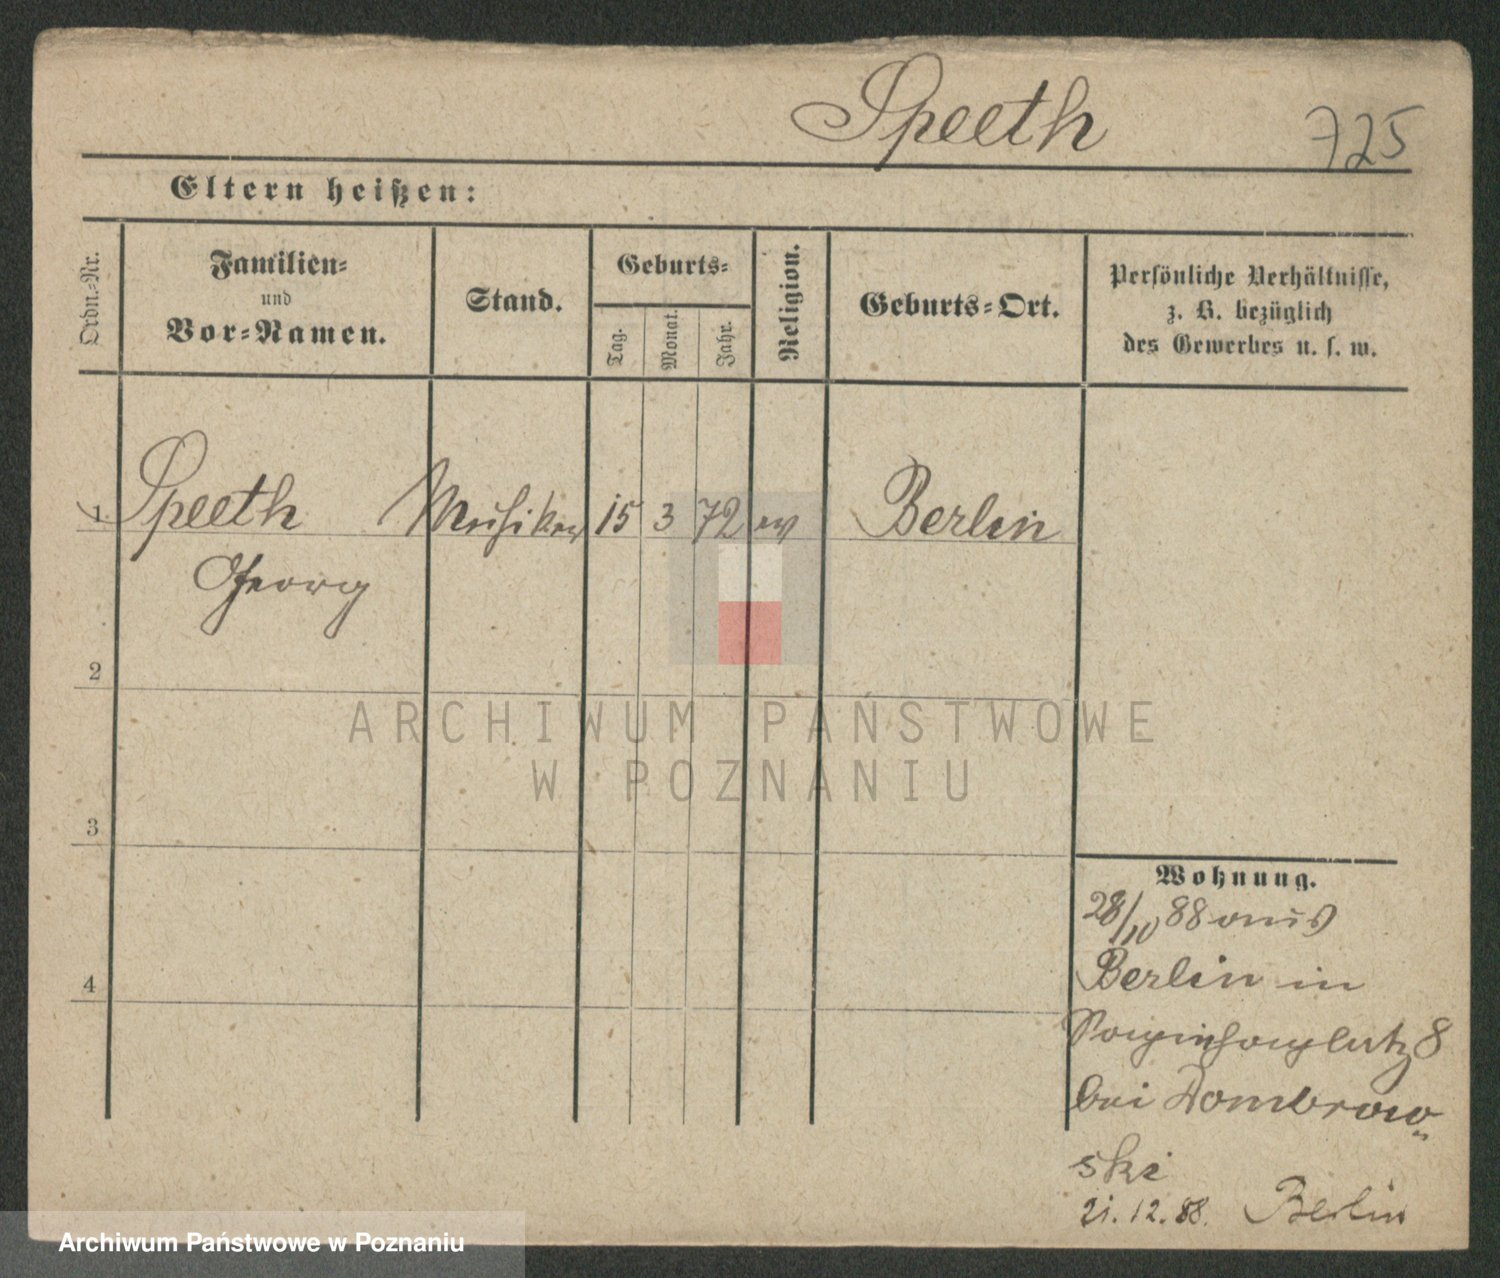 Speeth 725
Eltern heißen:
Ordn.-Nr.
Familien-
und
Vor-Namen.
Stand.
Geburts-
Tag.
Monat.
Jahr.
Religion.
Geburts-Ort.
Persönliche Verhältnisse,
z. B. bezüglich
des Gewerbes u. s. w.
1 Speeth Musiker 15 3 72 ev Berlin
Georg
2
3
4
ARCHIWUM PAŃSTWOWE
W POZNANIU
Wohnung.
28/10 88 aus
Berlin in
8
bei Dombrow-
ski
21.12.88. Berlin
Archiwum Państwowe w Poznaniu